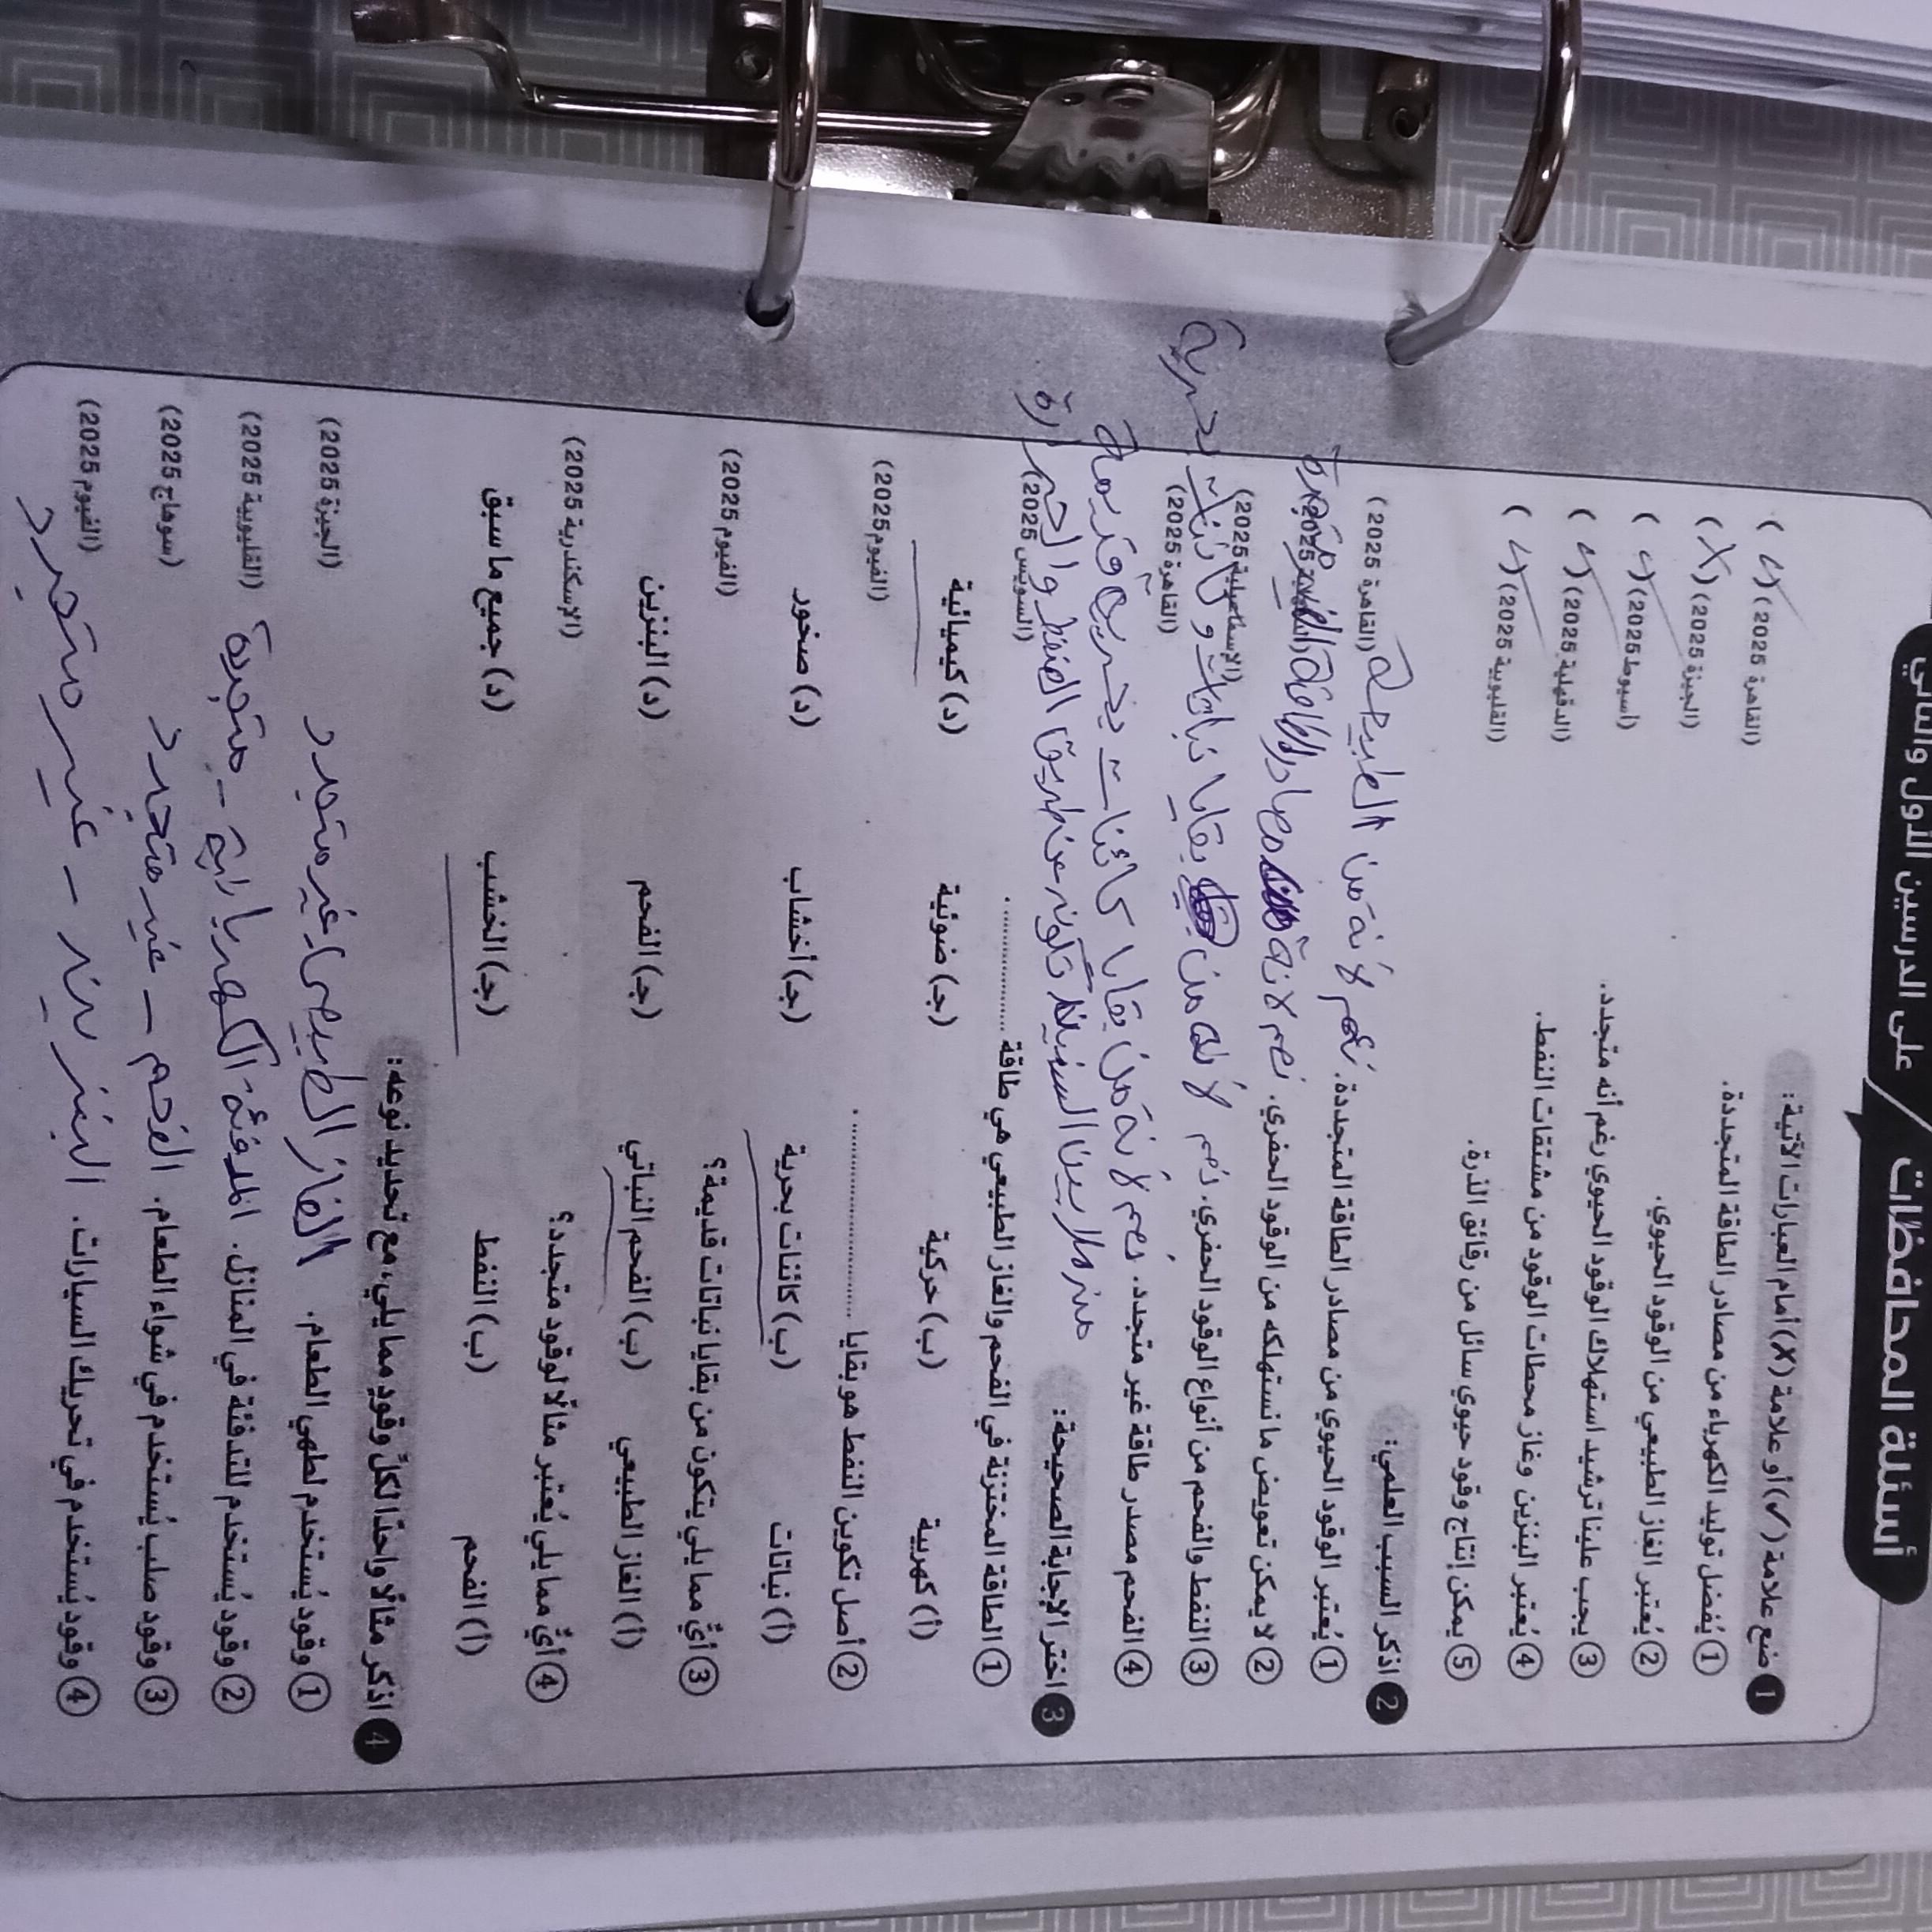 أسئلة المحافظات على الدرسين الأول والثاني
1 ضع علامة (✓) أو علامة (✗) أمام العبارات الآتية:
① يُفضل توليد الكهرباء من مصادر الطاقة المتجددة. (القاهرة 2025) (✓)
② يُعتبر الغاز الطبيعي من الوقود الحيوي. (الجيزة 2025) (✗)
③ يجب علينا ترشيد استهلاك الوقود الحيوي رغم أنه متجدد. (أسيوط 2025) (✓)
④ يُعتبر البنزين وغاز محطات الوقود من مشتقات النفط. (الدقهلية 2025) (✓)
⑤ يمكن إنتاج وقود حيوي سائل من رقائق الذرة. (القليوبية 2025) (✓)
2 اذكر السبب العلمي:
① يُعتبر الوقود الحيوي من مصادر الطاقة المتجددة. نعم لأنه من الطبيعة (القاهرة 2025)
② لا يمكن تعويض ما نستهلكه من الوقود الحفري. نعم لانه مصادر الطاقة
③ النفط والفحم من أنواع الوقود الحفري. نعم لأنه من بقايا نباتات و كائنات بحرية (الإسماعيلية 2025) (القاهرة 2025)
④ الفحم مصدر طاقة غير متجدد. نعم لأنه من بقايا كائنات بحرية قديمة (السويس 2025)
منذ ملايين السنين تكونه عن طريق الضغط والحرارة
3 اختر الإجابة الصحيحة:
① الطاقة المختزنة في الفحم والغاز الطبيعي هي طاقة ....................
(أ) كهربية (ب) حركية (ج) ضوئية (د) كيميائية
② أصل تكوين النفط هو بقايا .................... (الفيوم 2025)
(أ) نباتات (ب) كائنات بحرية (ج) أخشاب (د) صخور
③ أيٌّ مما يلي يتكون من بقايا نباتات قديمة؟ (الفيوم 2025)
(أ) الغاز الطبيعي (ب) الفحم النباتي (ج) الفحم (د) البنزين
④ أيٌّ مما يلي يُعتبر مثالًا لوقود متجدد؟ (الإسكندرية 2025)
(أ) الفحم (ب) النفط (ج) الخشب (د) جميع ما سبق
4 اذكر مثالًا واحدًا لكلِّ وقودٍ مما يلي، مع تحديد نوعه:
① وقود يُستخدم لطهي الطعام. الغاز الطبيعي غير متجدد (الجيزة 2025)
② وقود يُستخدم للتدفئة في المنازل. المدفئة الكهربائية - متجددة (القليوبية 2025)
③ وقود صلب يُستخدم في شواء الطعام. الفحم - غير متجدد (سوهاج 2025)
④ وقود يُستخدم في تحريك السيارات. البنزين - غير متجدد (الفيوم 2025)